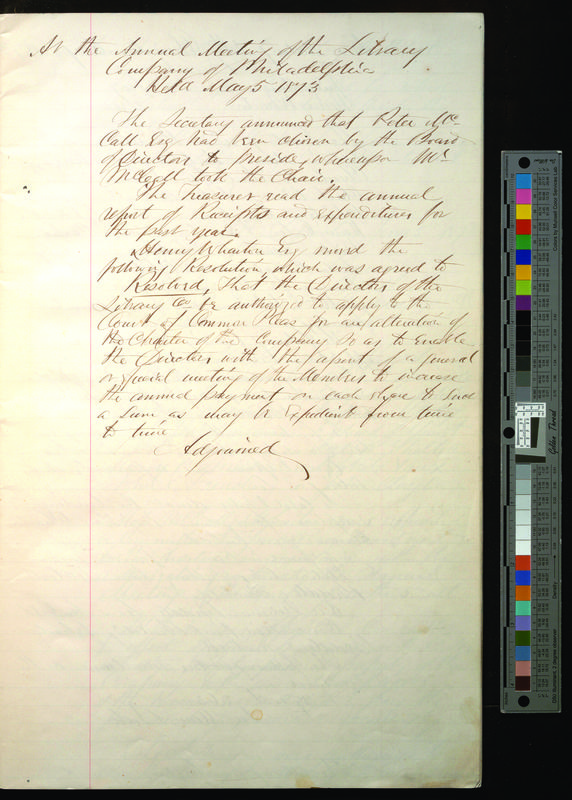 At the Annual Meeting of the Library
Company of Philadelphia
Held May 5 1873
The Secretary announced that Peter Mc
Call Esq had been chosen by the Board
of Directors to preside, whereupon Mr
McCall took the Chair.
The Treasurer read the annual
report of Receipts and expenditures for
the past year.
Henry Wharton Esq moved the
following Resolution, which was agreed to
Resolved, That the Directors of the
Library Co be authorized to apply to the
Court of Common Pleas for an alteration of
the Charter of the Company so as to enable
the Directors with the assent of a general
or special meeting of the Members to increase
the annual payment on each share to such
a sum as may be expedient from time
to time
Adjourned
Golden Thread